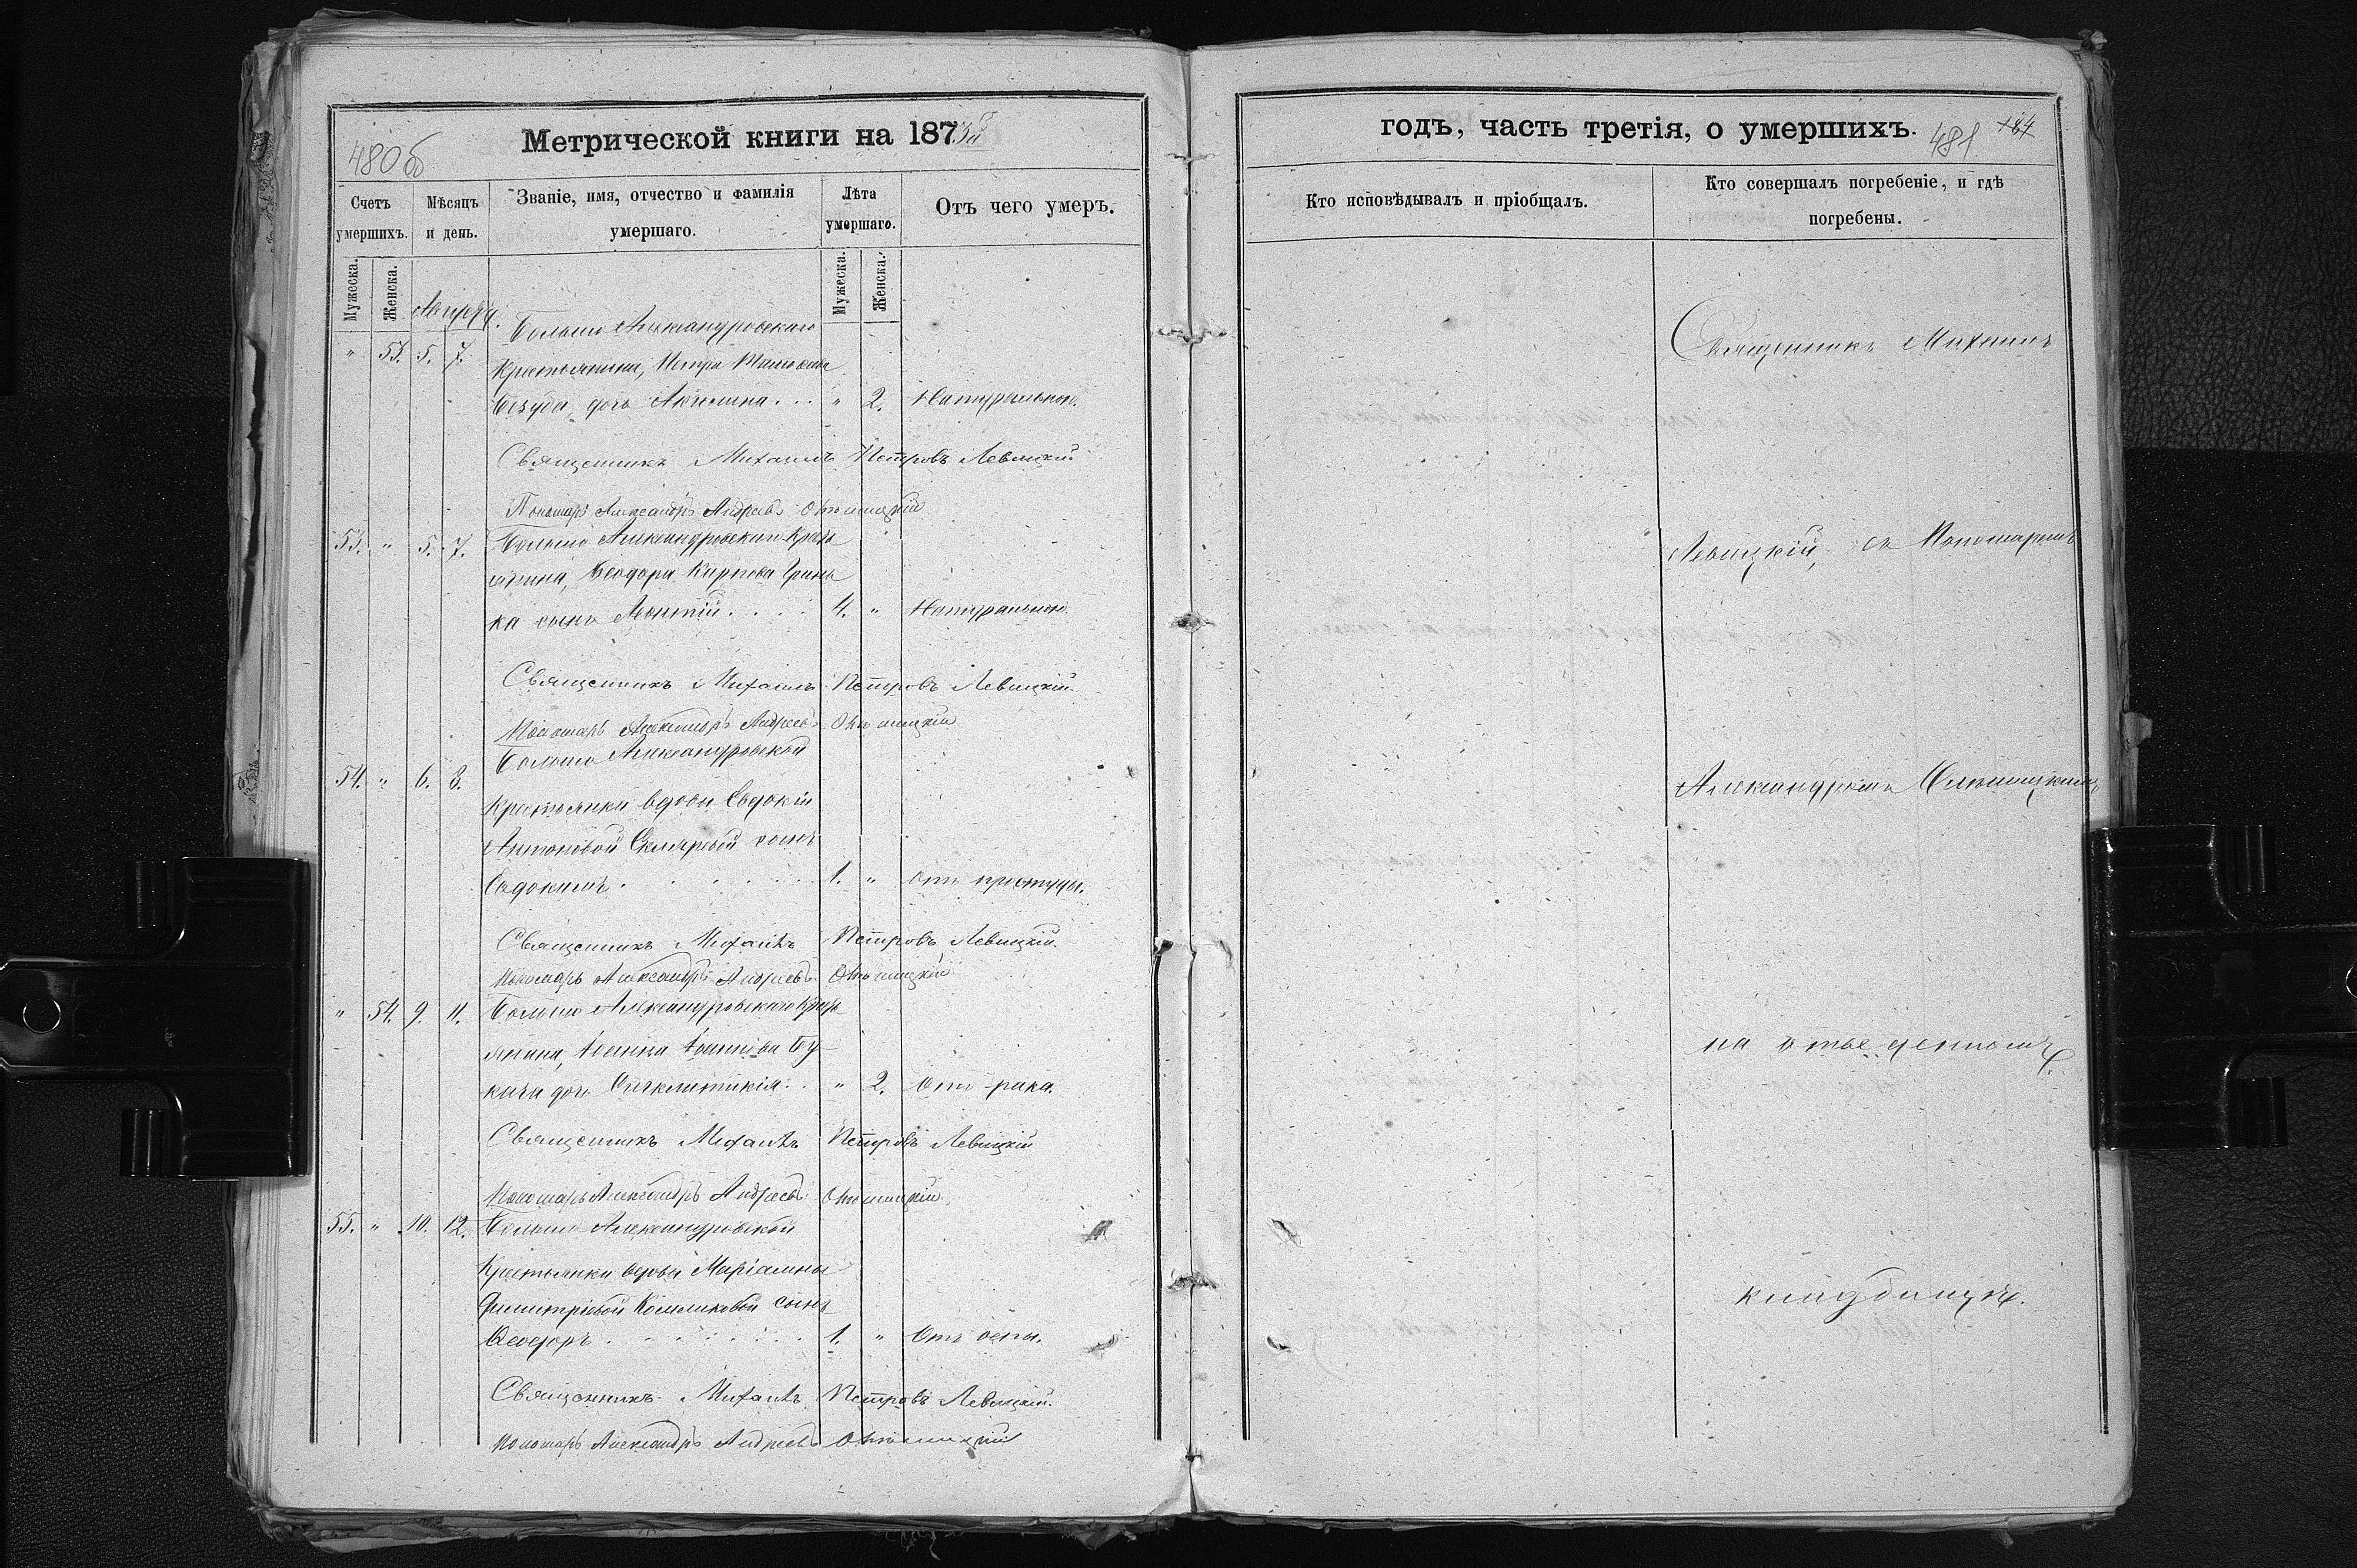 Метрической книги на 1873й
480об
Счетъ умершихъ.
Мѣсяцъ и день.
Званіе, имя, отчество и фамилія умершаго.
Лѣта умершаго.
Отъ чего умеръ.
Мужеска.
Женска.
Мужеска.
Женска.
Больше Александровскаго
" 53. 5. 7.
Крестьянина, Петра
дочь Акилина . . . " 2. Натурально.
Священникъ Михаилъ Петровъ Левицкій
Пономарь Александръ Андреевъ
53. " 5. 7. Больше Александровскаго Кресть
янина, Ѳеодора Карпова Гринь
ка сынъ Леонтій . . . . 4. " Натурально.
Священникъ Михаилъ Петровъ Левицкій.
Пономарь Александръ Андреевъ
Больше Александровской
54. " 6. 8.
Крестьянки вдовы Евдокіи
Антоновой сынъ
Евдокимъ . . . . . . 1. " Отъ простуды.
Священникъ Михаилъ Петровъ Левицкій.
Пономарь Александръ Андреевъ
" 54. 9. 11. Больше Александровскаго Кресть
янина, Іоанна Іоаннова Бу-
кача дочь Синклитикія . . " 2. Отъ рака.
Священникъ Михаилъ Петровъ Левицкій
Пономарь Александръ Андреевъ
55. " 10. 12. Больше Александровской
Крестьянки вдовы Маріамны
Димитріевой сынъ
Ѳеодоръ . . . . . . . 1. " Отъ оспы.
Священникъ Михаилъ Петровъ Левицкій.
Пономарь Александръ Андреевъ
годъ, часть третія, о умершихъ.
481 184
Кто исповѣдывалъ и пріобщалъ.
Кто совершалъ погребеніе, и гдѣ погребены.
Священникъ Михаилъ
Левицкій, съ Пономаремъ
Александромъ
на отведенномъ
кладбищѣ.